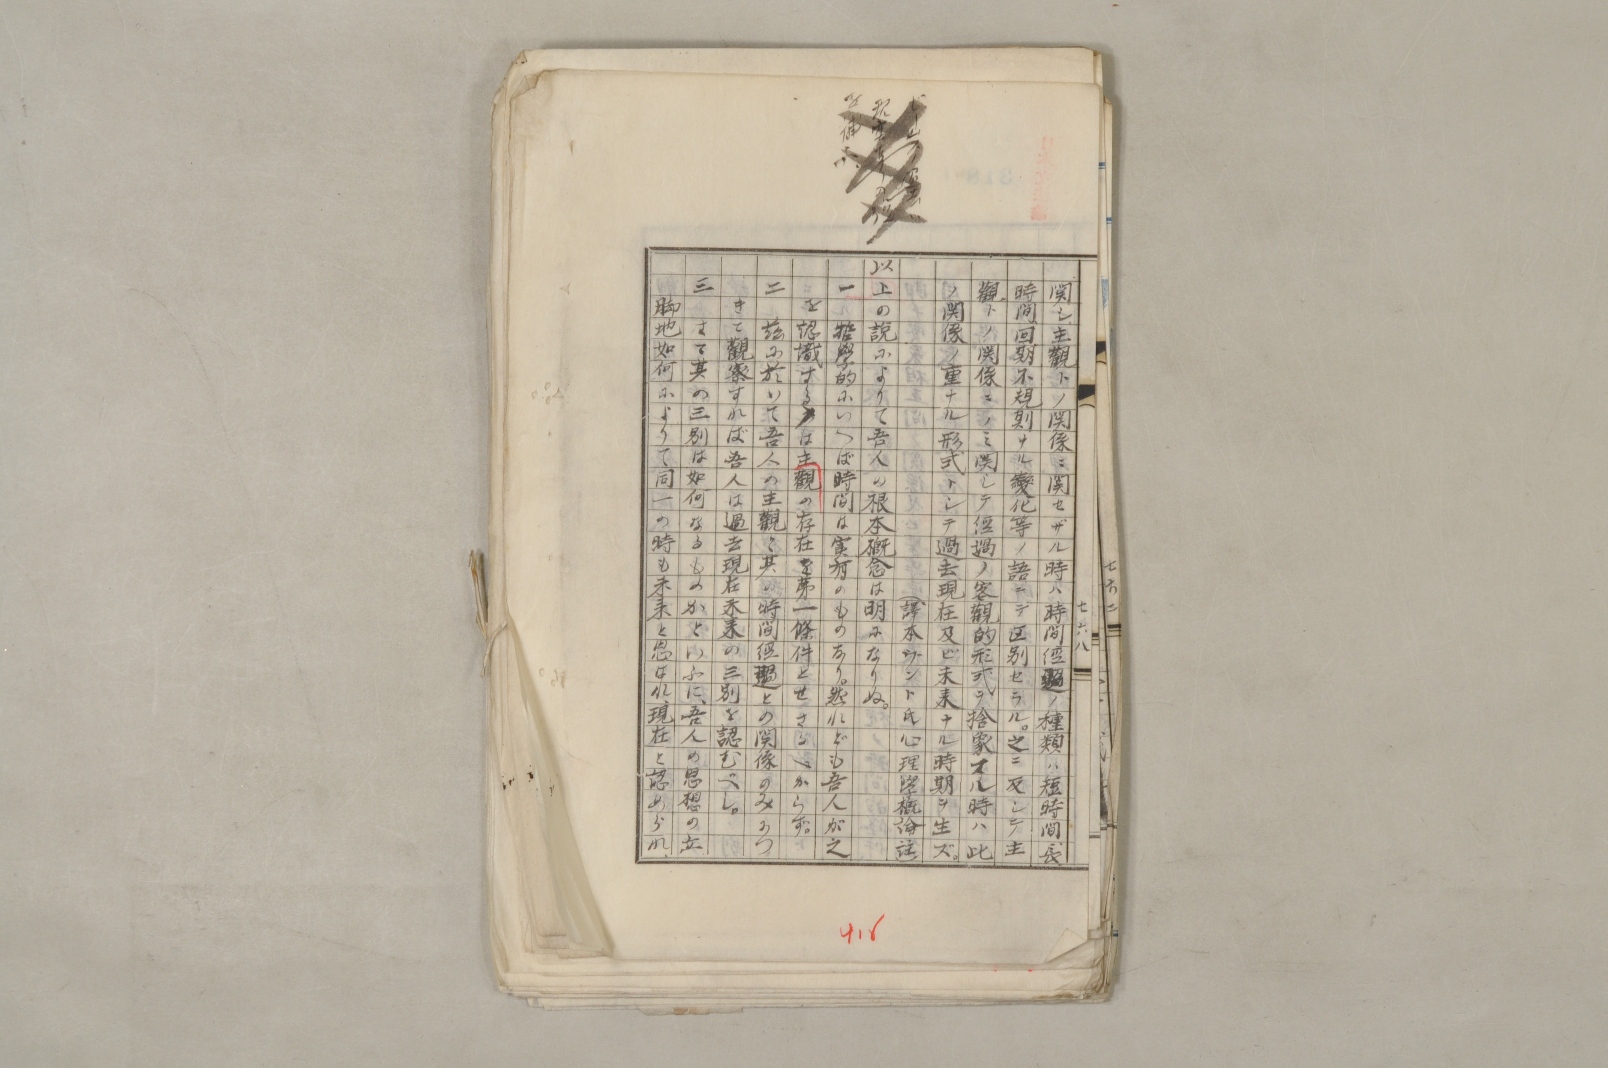 関シ主觀トノ関係ニ関セザル時ハ時間経過ノ種類ハ短時間長
時間回期不規則ナル變化等ノ語ニテ区別セラル。之ニ反シテ主
觀トノ関係ニノミ関シテ経過ノ客觀的形式ヲ捨象スル時ハ此
ノ関係ノ重ナル形式トシテ過去現在及ビ未来ナル時期ヲ生ズ。
(譯本ヴント氏心理学概論註
以上の説によりて吾人の根本概念は明になりぬ。
一 哲學的にいへば時間は実有のものなり。然れども吾人が之
を認識するは主觀の存在を第一條件とせざるべからず。
二 茲に於いて吾人の主觀と其の時間経過との関係のみにつ
きて觀察すれば吾人は過去現在未来の三別を認むべし。
三 さて其の三別は如何なるものかといふに、吾人の思想の立
脚地如何によりて同一の時も未来と思はれ、現在と認められ、
七六八
七六二
416